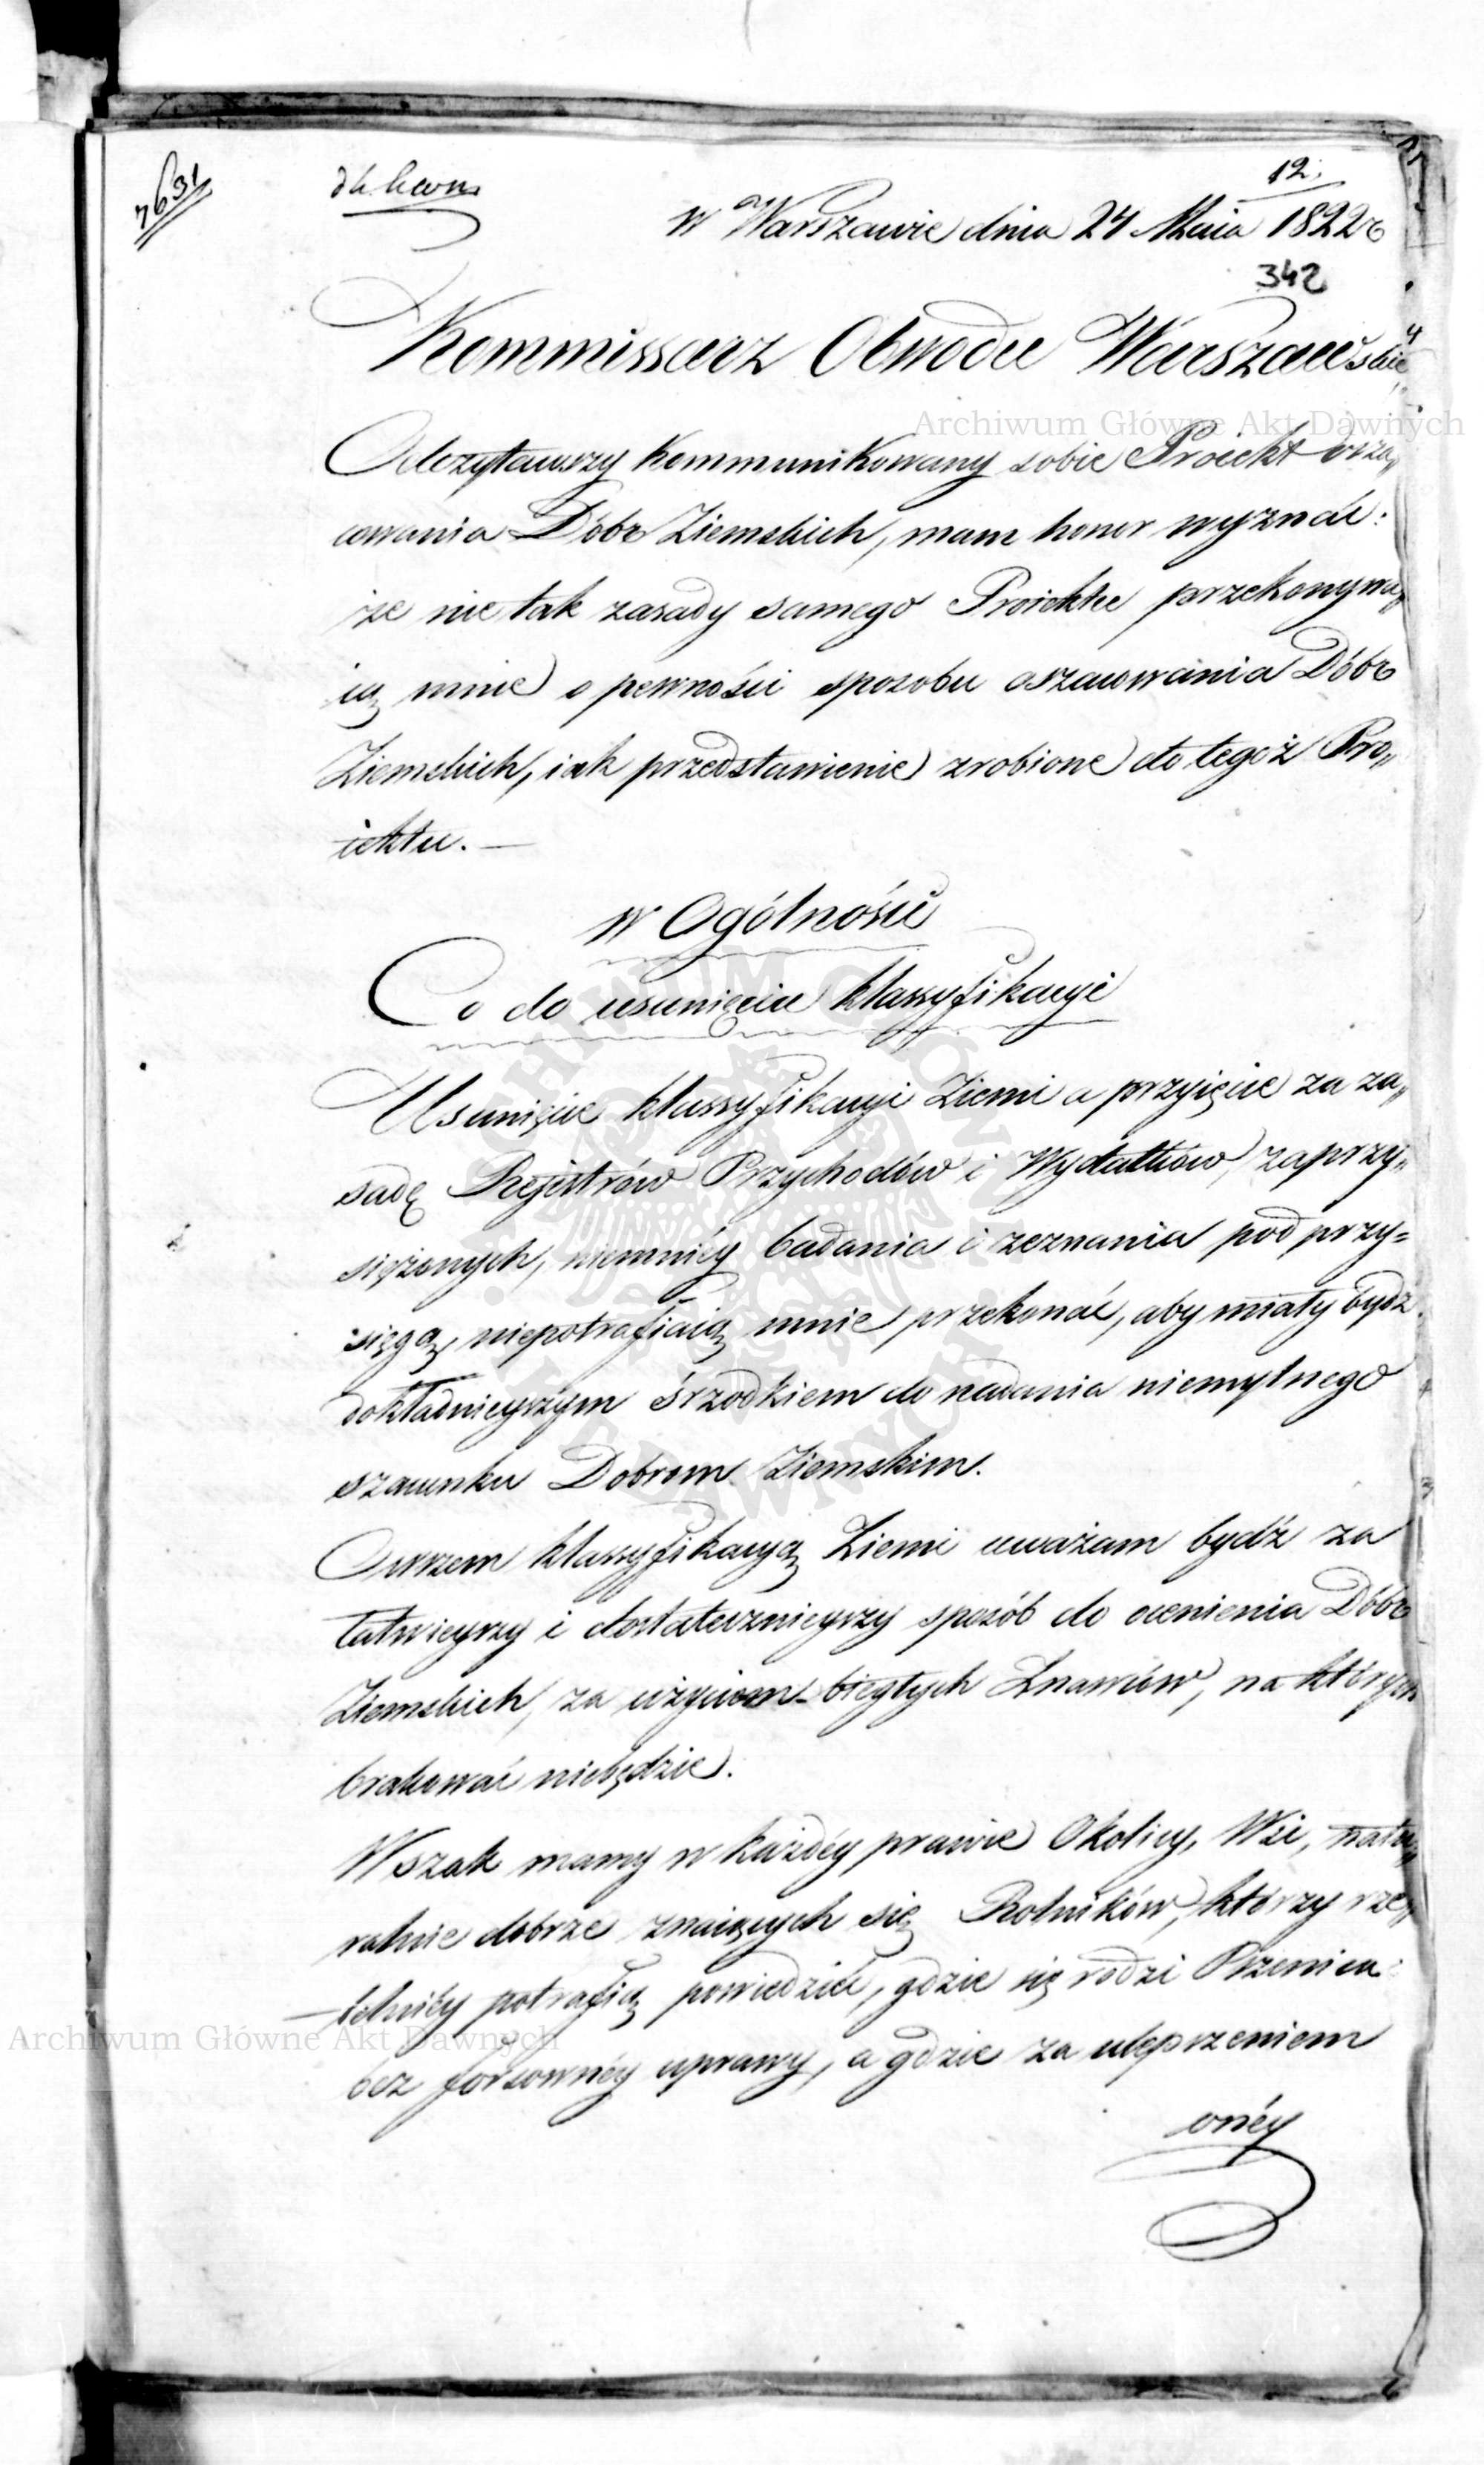 7631
12.
w Warszawie dnia 24 Maia 1822 r
342
Kommissarz Obwodu Warszawskie
Archiwum Główne Akt Dawnych
Odczytawszy kommunikowany sobie Proiekt osza„
cowania Dóbr Ziemskich, mam honor wyznać:
że nie tak zasady samego Proiektu przekonywa„
ią mnie o pewności sposobu oszacowania Dóbr
Ziemskich, iak przedstawienie zrobione do tegoż Pro„
iektu. —
w Ogólności
Co do usunięcia klassyfikacyi
Usunięcie klassyfikacyi Ziemi a przyięcie za za„
sadę Rejestrów Przychodów i Wydatków zaprzy„
siężonych, niemniéy badania i zeznania pod przy=
sięgą, niepotrafiaią mnie przekonać, aby miały bydź
dokładnieyszym śrzodkiem do nadania niemylnego
szacunku Dobrom Ziemskim.
Owszem klassyfikacyą Ziemi uważam bydź za
łatwieyszy i dostatecznieyszy sposób do ocenienia Dóbr
Ziemskich, za użyciem biegłych Znawców, na których
brakować niebędzie.
Wszak mamy w każdéy prawie Okolicy, Wsi, natu„
ralnie dobrze znaiących się Rolników, którzy rze„
telniéy potrafią powiedzieć, gdzie się rodzi Pszenica
Archiwum Główne Akt Dawnych
bez forsownéy uprawy, a gdzie za ulepszeniem
onéy